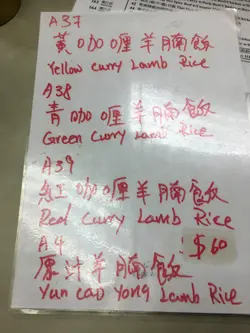 A37
黃咖喱羊腩飯
Yellow Curry Lamb Rice
A38
青咖喱羊腩飯
Green Curry Lamb Rice
A39
紅咖喱羊腩飯
Red Curry Lamb Rice
A4
$60
原汁羊腩飯
Yun cao Yong Lamb Rice